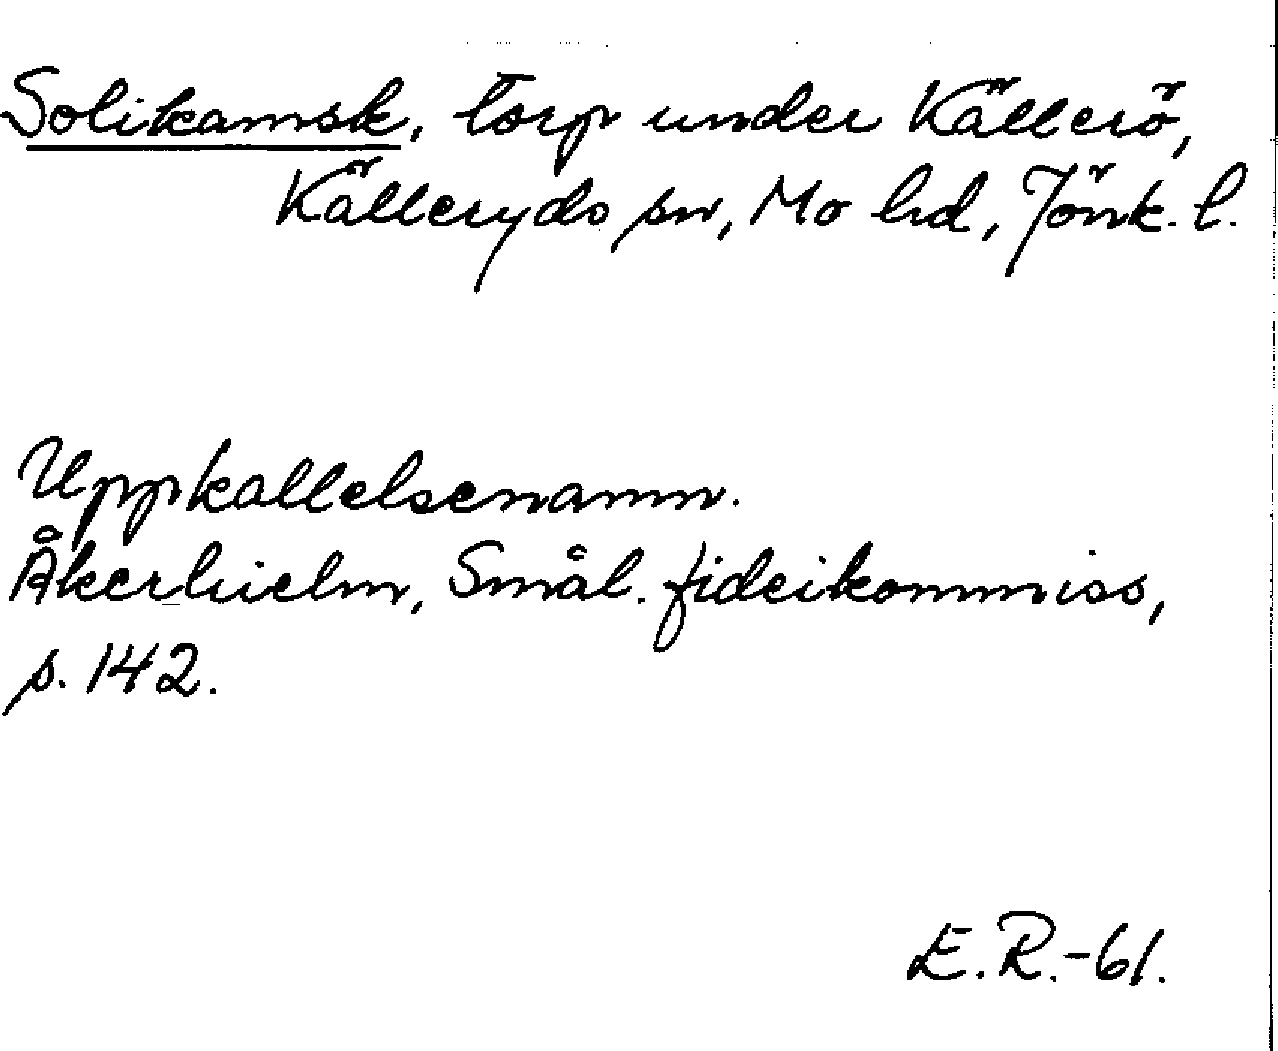 Solikamsk, torp under Källerö,
Källeryds sn, Mo hd, Jönk. l.
Uppkallelsenamn.
Åkerhielm, Smål. fideikommiss,
s. 142.
E.R.-61.